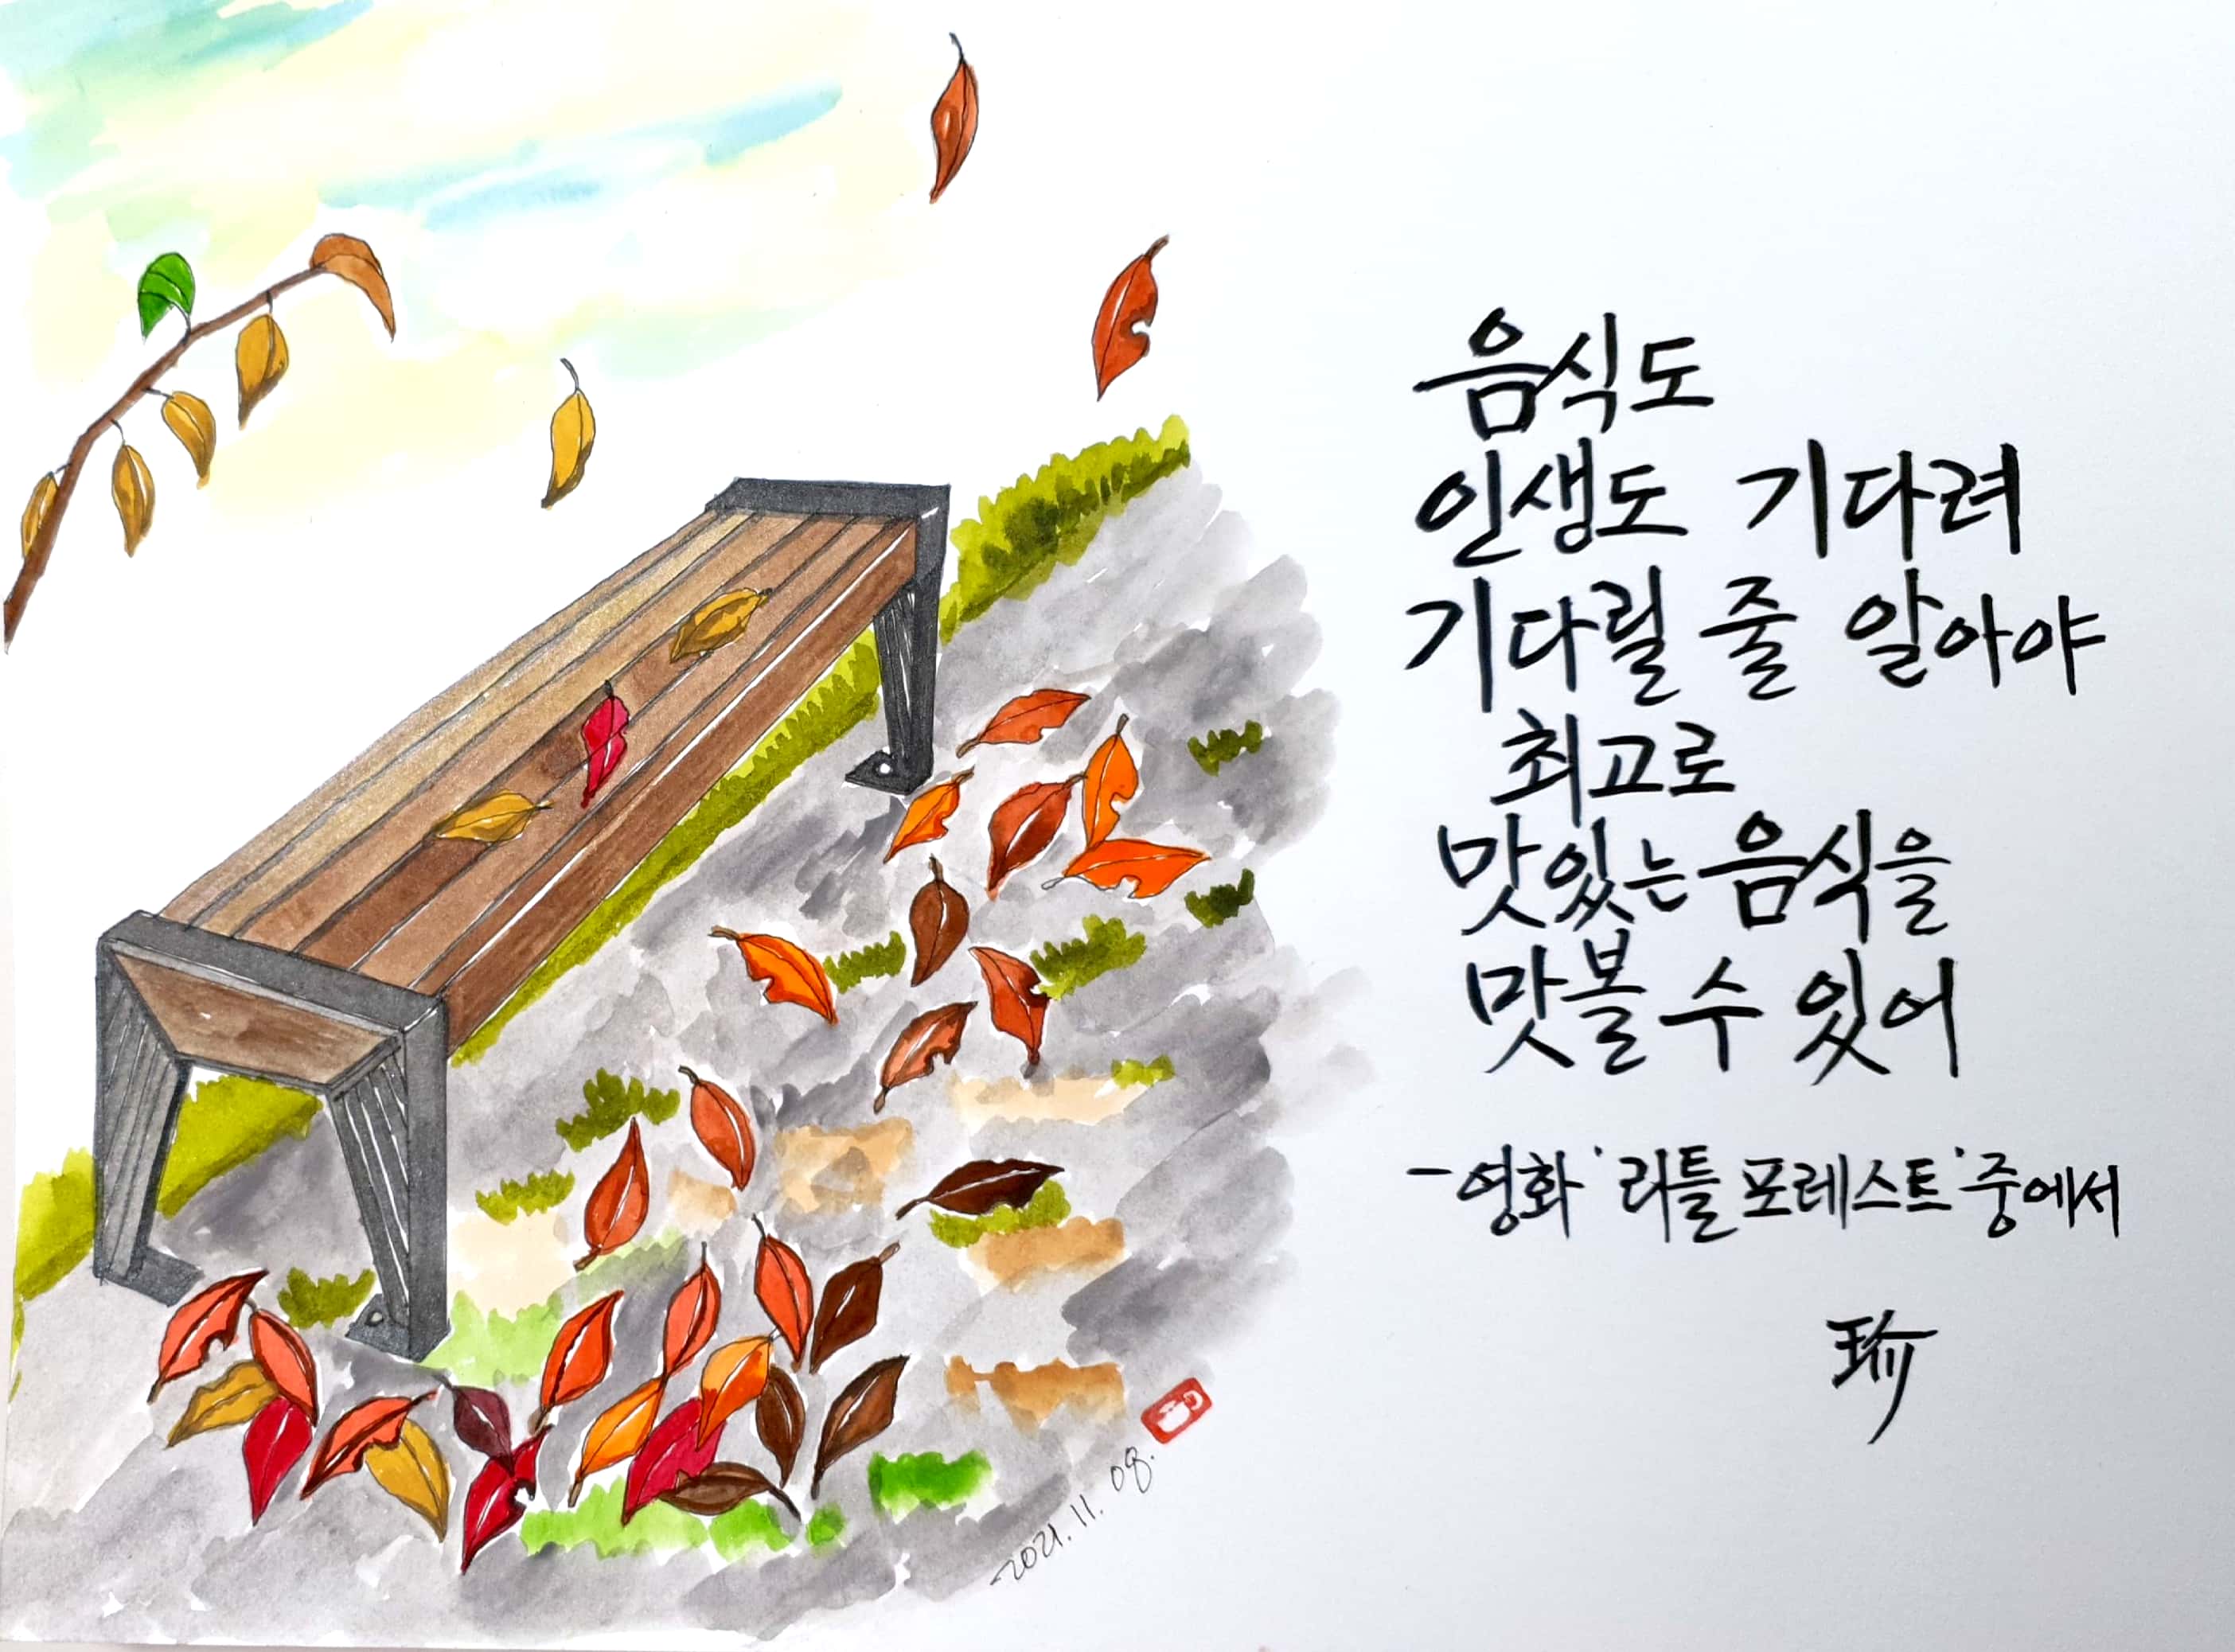 음식도
인생도 기다려
기다릴 줄 알아야
최고로
맛있는 음식을
맛볼 수 있어
-영화 '리틀 포레스트' 중에서
瑜
2021. 11. 08.